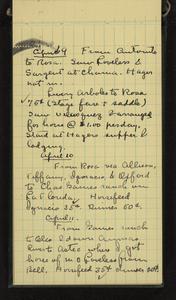 April 9 From Antonito
to Rosa. Saw Loveless &
Sargent at Chama. Hager
not in.
Livery Arboles to Rosa
75¢ (Stage fare & saddle)
Saw Velasquez & arranged
for horse @ $1.00 per day,
Stud at Hagers supper &
lodging.
April 10
From Rosa via Allison,
Tiffany, Ignacio & Oxford
to Chas Games ranch on
La Florida. Horsefeed
Ignacio 35¢ Dinner 50¢.
April 11.
From Games ranch
to Cleo
Aztec when I got
horse of Loveless from
Bell. Horsefeed 35¢ dinner 50¢.